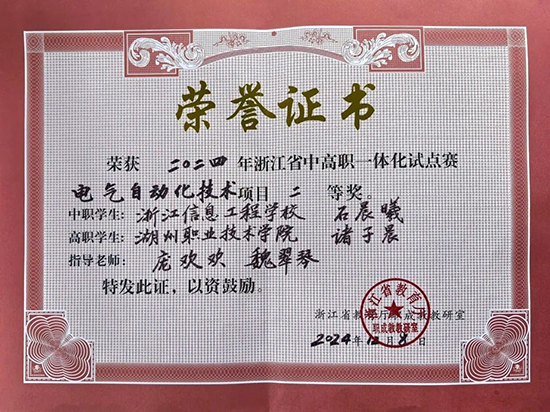 荣誉证书
荣获 二〇二四 年浙江省中高职一体化试点赛
电气自动化技术项目 二 等奖。
中职学生：浙江信息工程学校 石晨曦
高职学生：湖州职业技术学院 诸子晨
指导老师：庞欢欢 魏翠琴
特发此证，以资鼓励。
浙江省教育厅职成教教研室
浙江省教育厅
职成教教研室
2024年12月8日